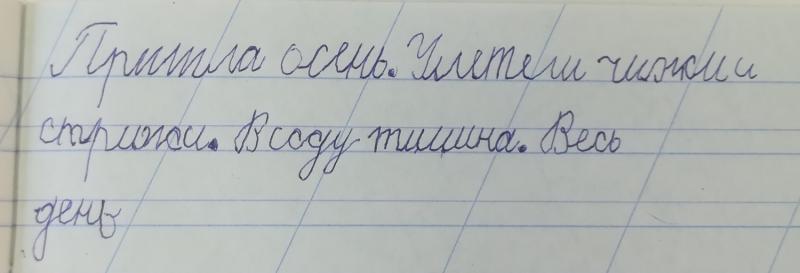 Пришла осень. Улетели чижи и
стрижи. В саду тишина. Весь
день